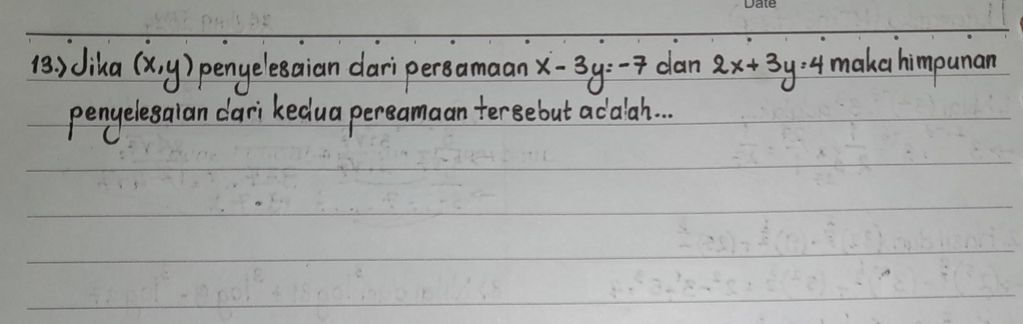 Date
13.) Jika (x,y) penyelesaian dari persamaan x - 3y = -7 dan 2x + 3y = 4 maka himpunan
penyelesaian dari kedua persamaan tersebut adalah...